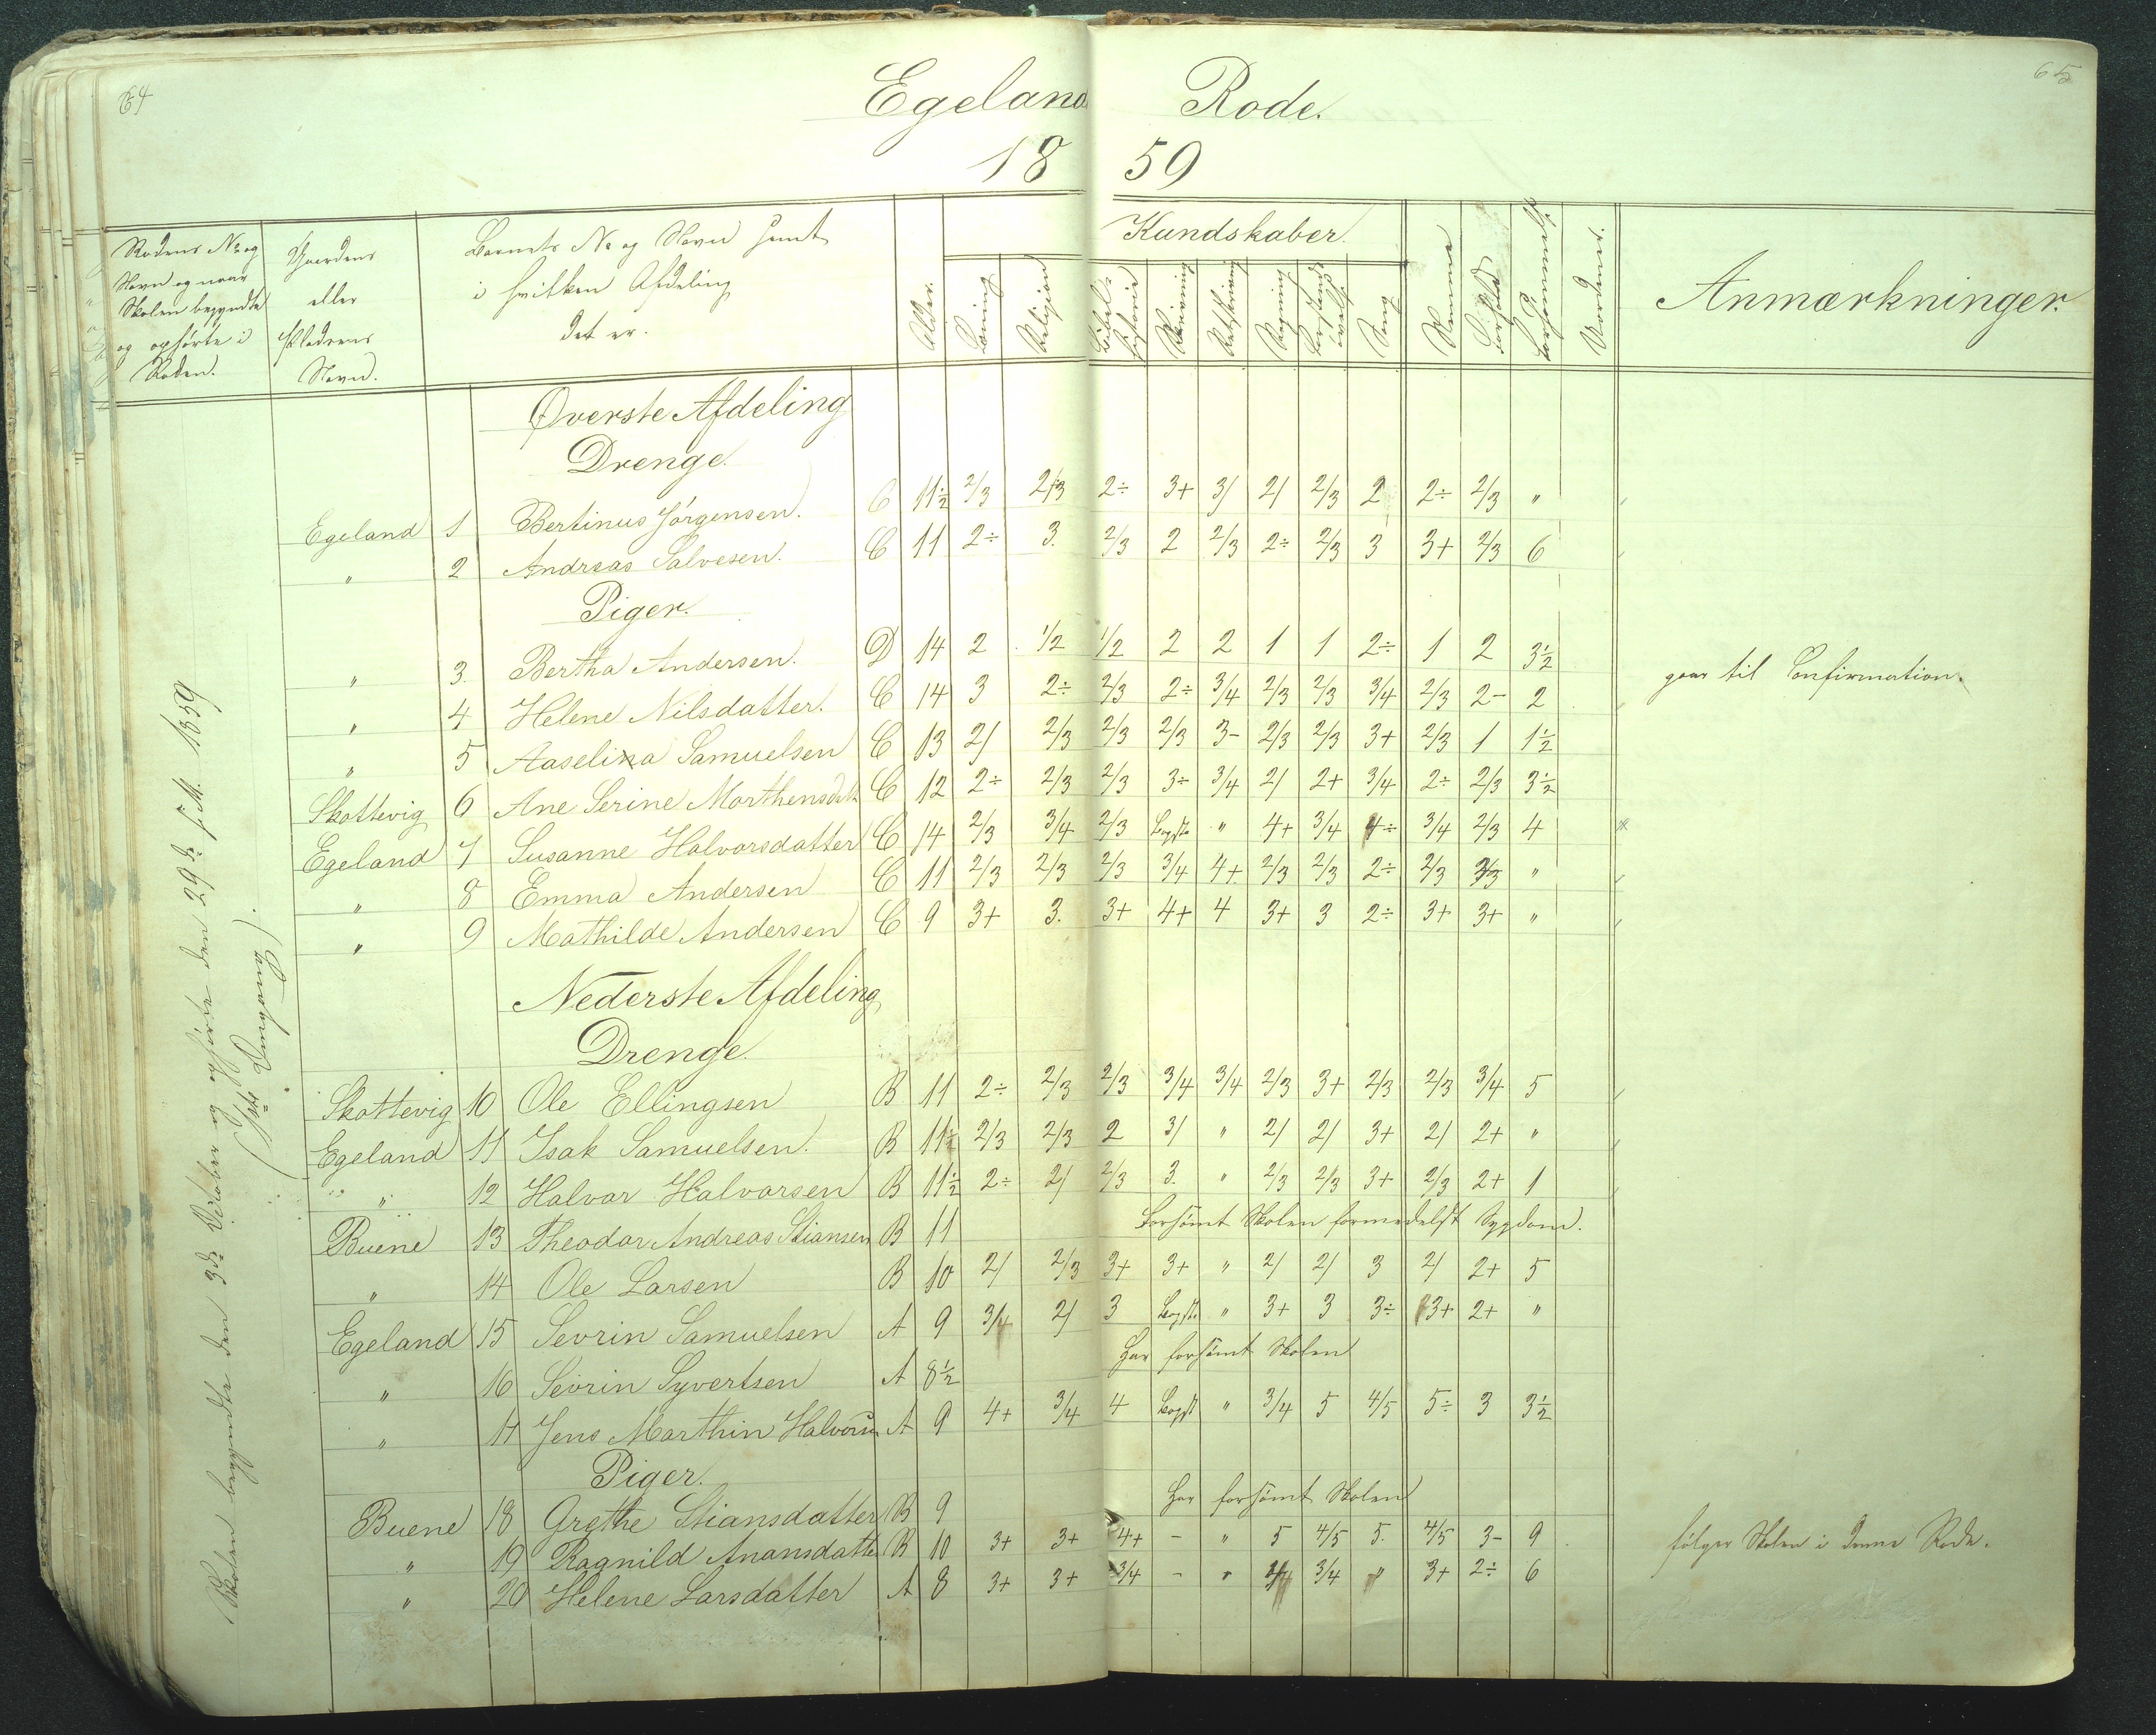 64
65
Egeland Rode.
18 59
Rodens No og Navn og naar Skolen begyndte og ophørte i Roden.
Gaardens eller Forældrenes Navn.
Barnets No og Navn samt i hvilken Afdeling det er.
Alder.
Kundskaber.
Læsning
Religion
Bibelhistorie
Skrivning
Retskrivning
Regning
Forstandsøvelse
Sang
Nemme
Forhold
Forsømmelse
Anmærkninger.
Skolen begyndte den 3die Oktober og ophørte den 29de s. M. 1859
(1ste Omgang).
Øverste Afdeling
Drenge.
Egeland 1 Bertinus Jörgensen. C 11½ 2/3 2/3 2÷ 3+ 3/ 2/ 2/3 2 2÷ 2/3 "
" 2 Andreas Salvesen. C 11 2÷ 3. 2/3 2 2/3 2÷ 2/3 3 3+ 2/3 6
Piger.
" 3. Bertha Andersen. D 14 2 1/2 1/2 2 2 1 1 2÷ 1 2 3½ gaar til Confirmation.
" 4 Helene Nilsdatter. C 14 3 2÷ 2/3 2÷ 3/4 2/3 2/3 3/4 2/3 2- 2
" 5 Aaselina Samuelsen C 13 2/ 2/3 2/3 2/3 3- 2/3 2/3 3+ 2/3 1 1½
Skottevig 6 Ane Serine Morthensdatt. C 12 2÷ 2/3 2/3 3÷ 3/4 2/ 2+ 3/4 2÷ 2/3 3½
Egeland 7 Susanne Halvorsdatter C 14 2/3 3/4 2/3 Bogst. " 4+ 3/4 4÷ 3/4 2/3 4
" 8 Emma Andersen C 11 2/3 2/3 2/3 3/4 4+ 2/3 2/3 2÷ 2/3 2/3 "
" 9 Mathilde Andersen C 9 3+ 3. 3+ 4+ 4 3+ 3 2÷ 3+ 3+ "
Nederste Afdeling
Drenge.
Skottevig 10 Ole Ellingsen B 11 2÷ 2/3 2/3 3/4 3/4 2/3 3+ 2/3 2/3 3/4 5
Egeland 11 Isak Samuelsen. B 11½ 2/3 2/3 2 3/ " 2/ 2/ 3+ 2/ 2+ "
" 12 Halvor Halvorsen B 11½ 2÷ 2/ 2/3 3. " 2/3 2/3 3+ 2/3 2+ 1
Buene 13 Theodor Andreas Stiansen B 11 Forsömt Skolen formedelst Sygdom.
" 14 Ole Larsen B 10 2/ 2/3 3+ 3+ " 2/ 2/ 3 2/ 2+ 5
Egeland 15 Sevrin Samuelsen A 9 3/4 2/ 3 Bogst. " 3+ 3 3÷ 3+ 2+ "
" 16 Sevrin Syvertsen A 8½ Har forsömt Skolen
" 17 Jens Marthin Halvorsen A 9 4+ 3/4 4 Bogst " 3/4 5 4/5 5÷ 3 3½
Piger.
Buene 18 Grethe Stiansdatter B 9 Har forsömt Skolen
" 19 Ragnild Anansdatter B 10 3+ 3+ 4+ - " 5 4/5 5. 4/5 3- 9 følger Skolen i denne Rode.
" 20 Helene Larsdatter A 8 3+ 3+ 3/4 - " 3/4 3/4 " 3+ 2÷ 6